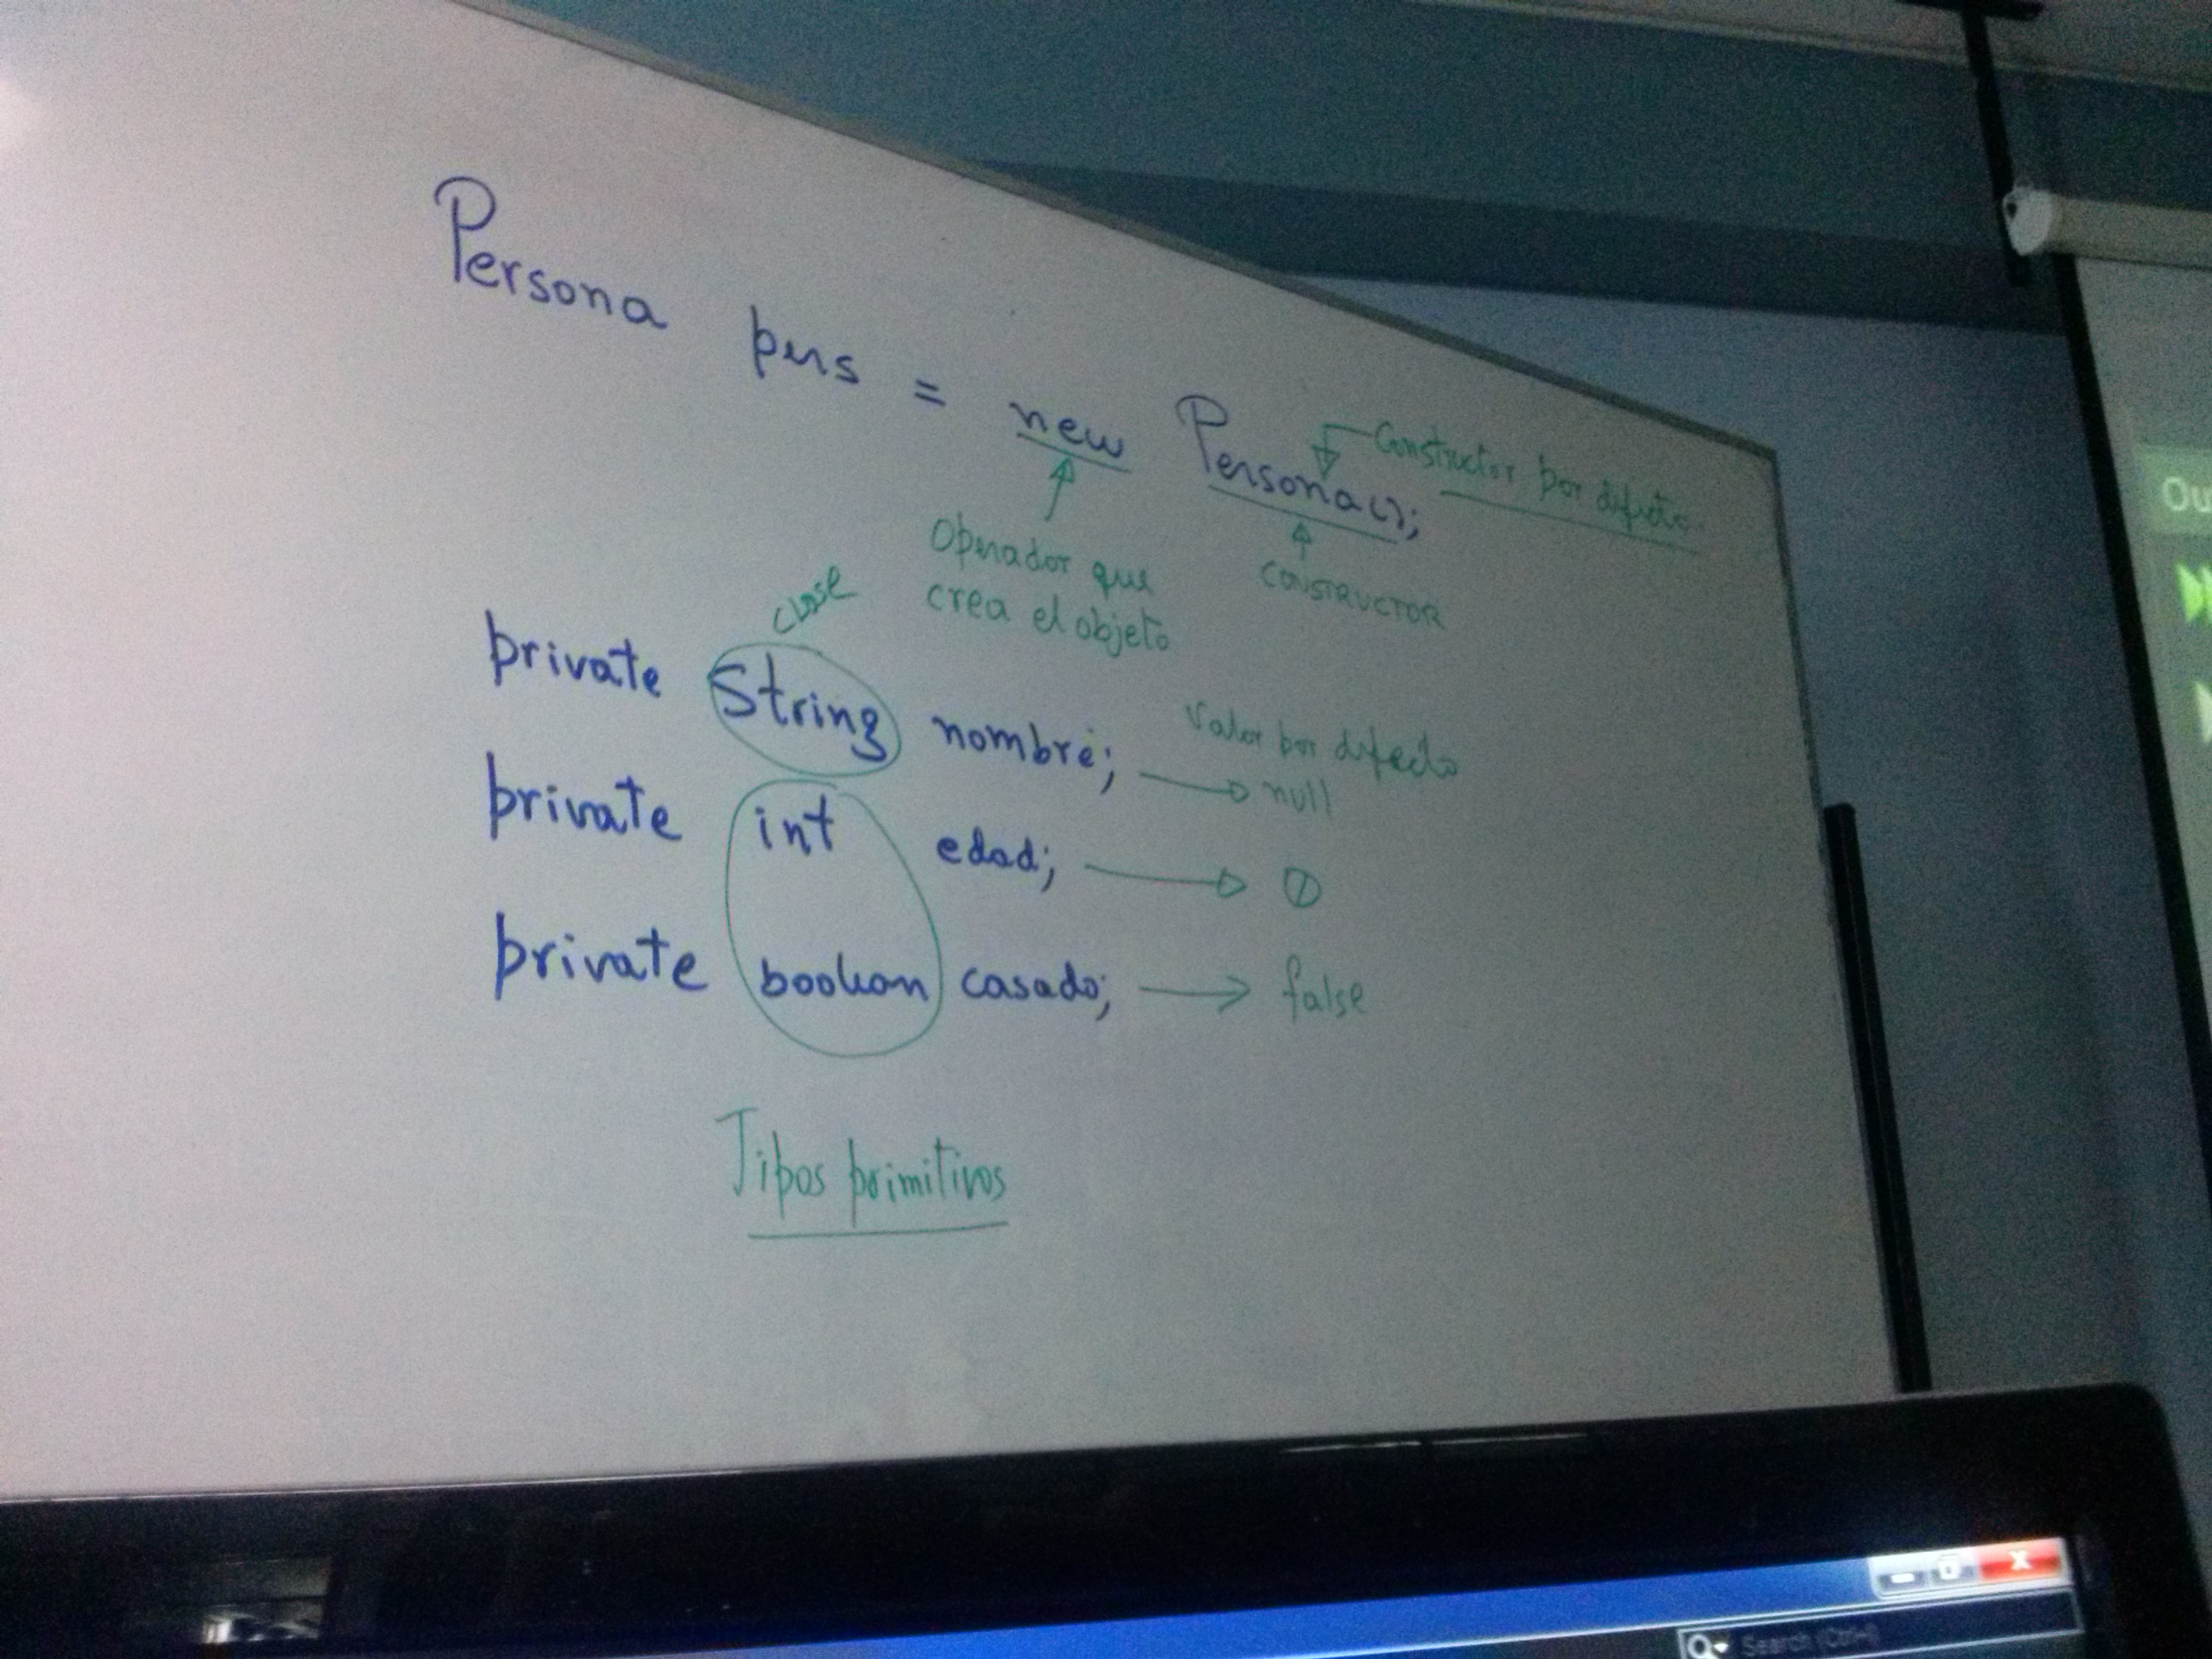 Persona pers = new Persona();
Constructor por difecto
Operador que
crea el objeto
CONSTRUCTOR
clase
private String nombre;
Valor por difecto
null
private int edad;
0
private boolean casado;
false
Tipos primitivos
Ou
Search (Ctrl+I)